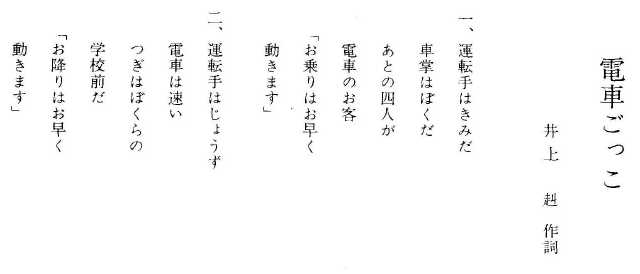 電車ごっこ
井上 赳 作詞
一、運転手はきみだ
車掌はぼくだ
あとの四人が
電車のお客
「お乗りはお早く
動きます」
二、運転手はじょうず
電車は速い
つぎはぼくらの
学校前だ
「お降りはお早く
動きます」